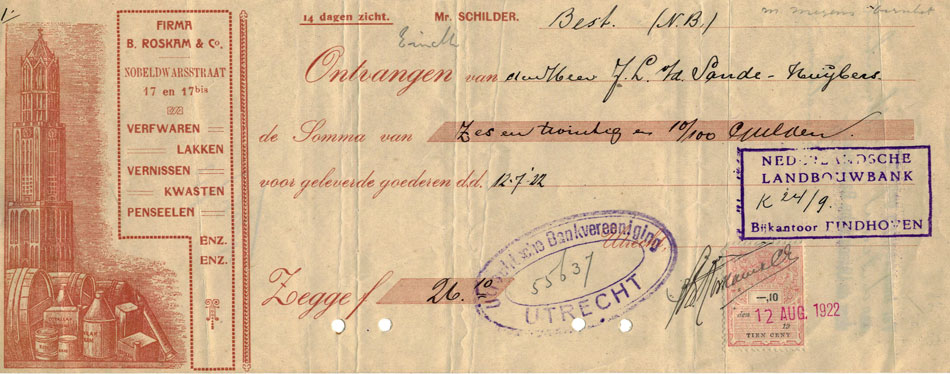 FIRMA
B. ROSKAM & Co.
NOBELDWARSSTRAAT
17 en 17bis
VERFWAREN
LAKKEN
VERNISSEN
KWASTEN
PENSEELEN
ENZ.
ENZ.
14 dagen zicht. Mr. SCHILDER. Best. (N.B.)
Ontvangen van den Heer J. L. v/d Sande-Huijbers.
de Somma van Zes en twintig en 10/100 Gulden.
voor geleverde goederen d.d. 12-7-22
NEDERLANDSCHE
LANDBOUWBANK
K 24/9.
Bijkantoor EINDHOVEN
Utrecht
Utrechtsche Bankvereeniging
55637
UTRECHT
Zegge f 26.10
—,10
den 12 AUG. 1922
19
TIEN CENT